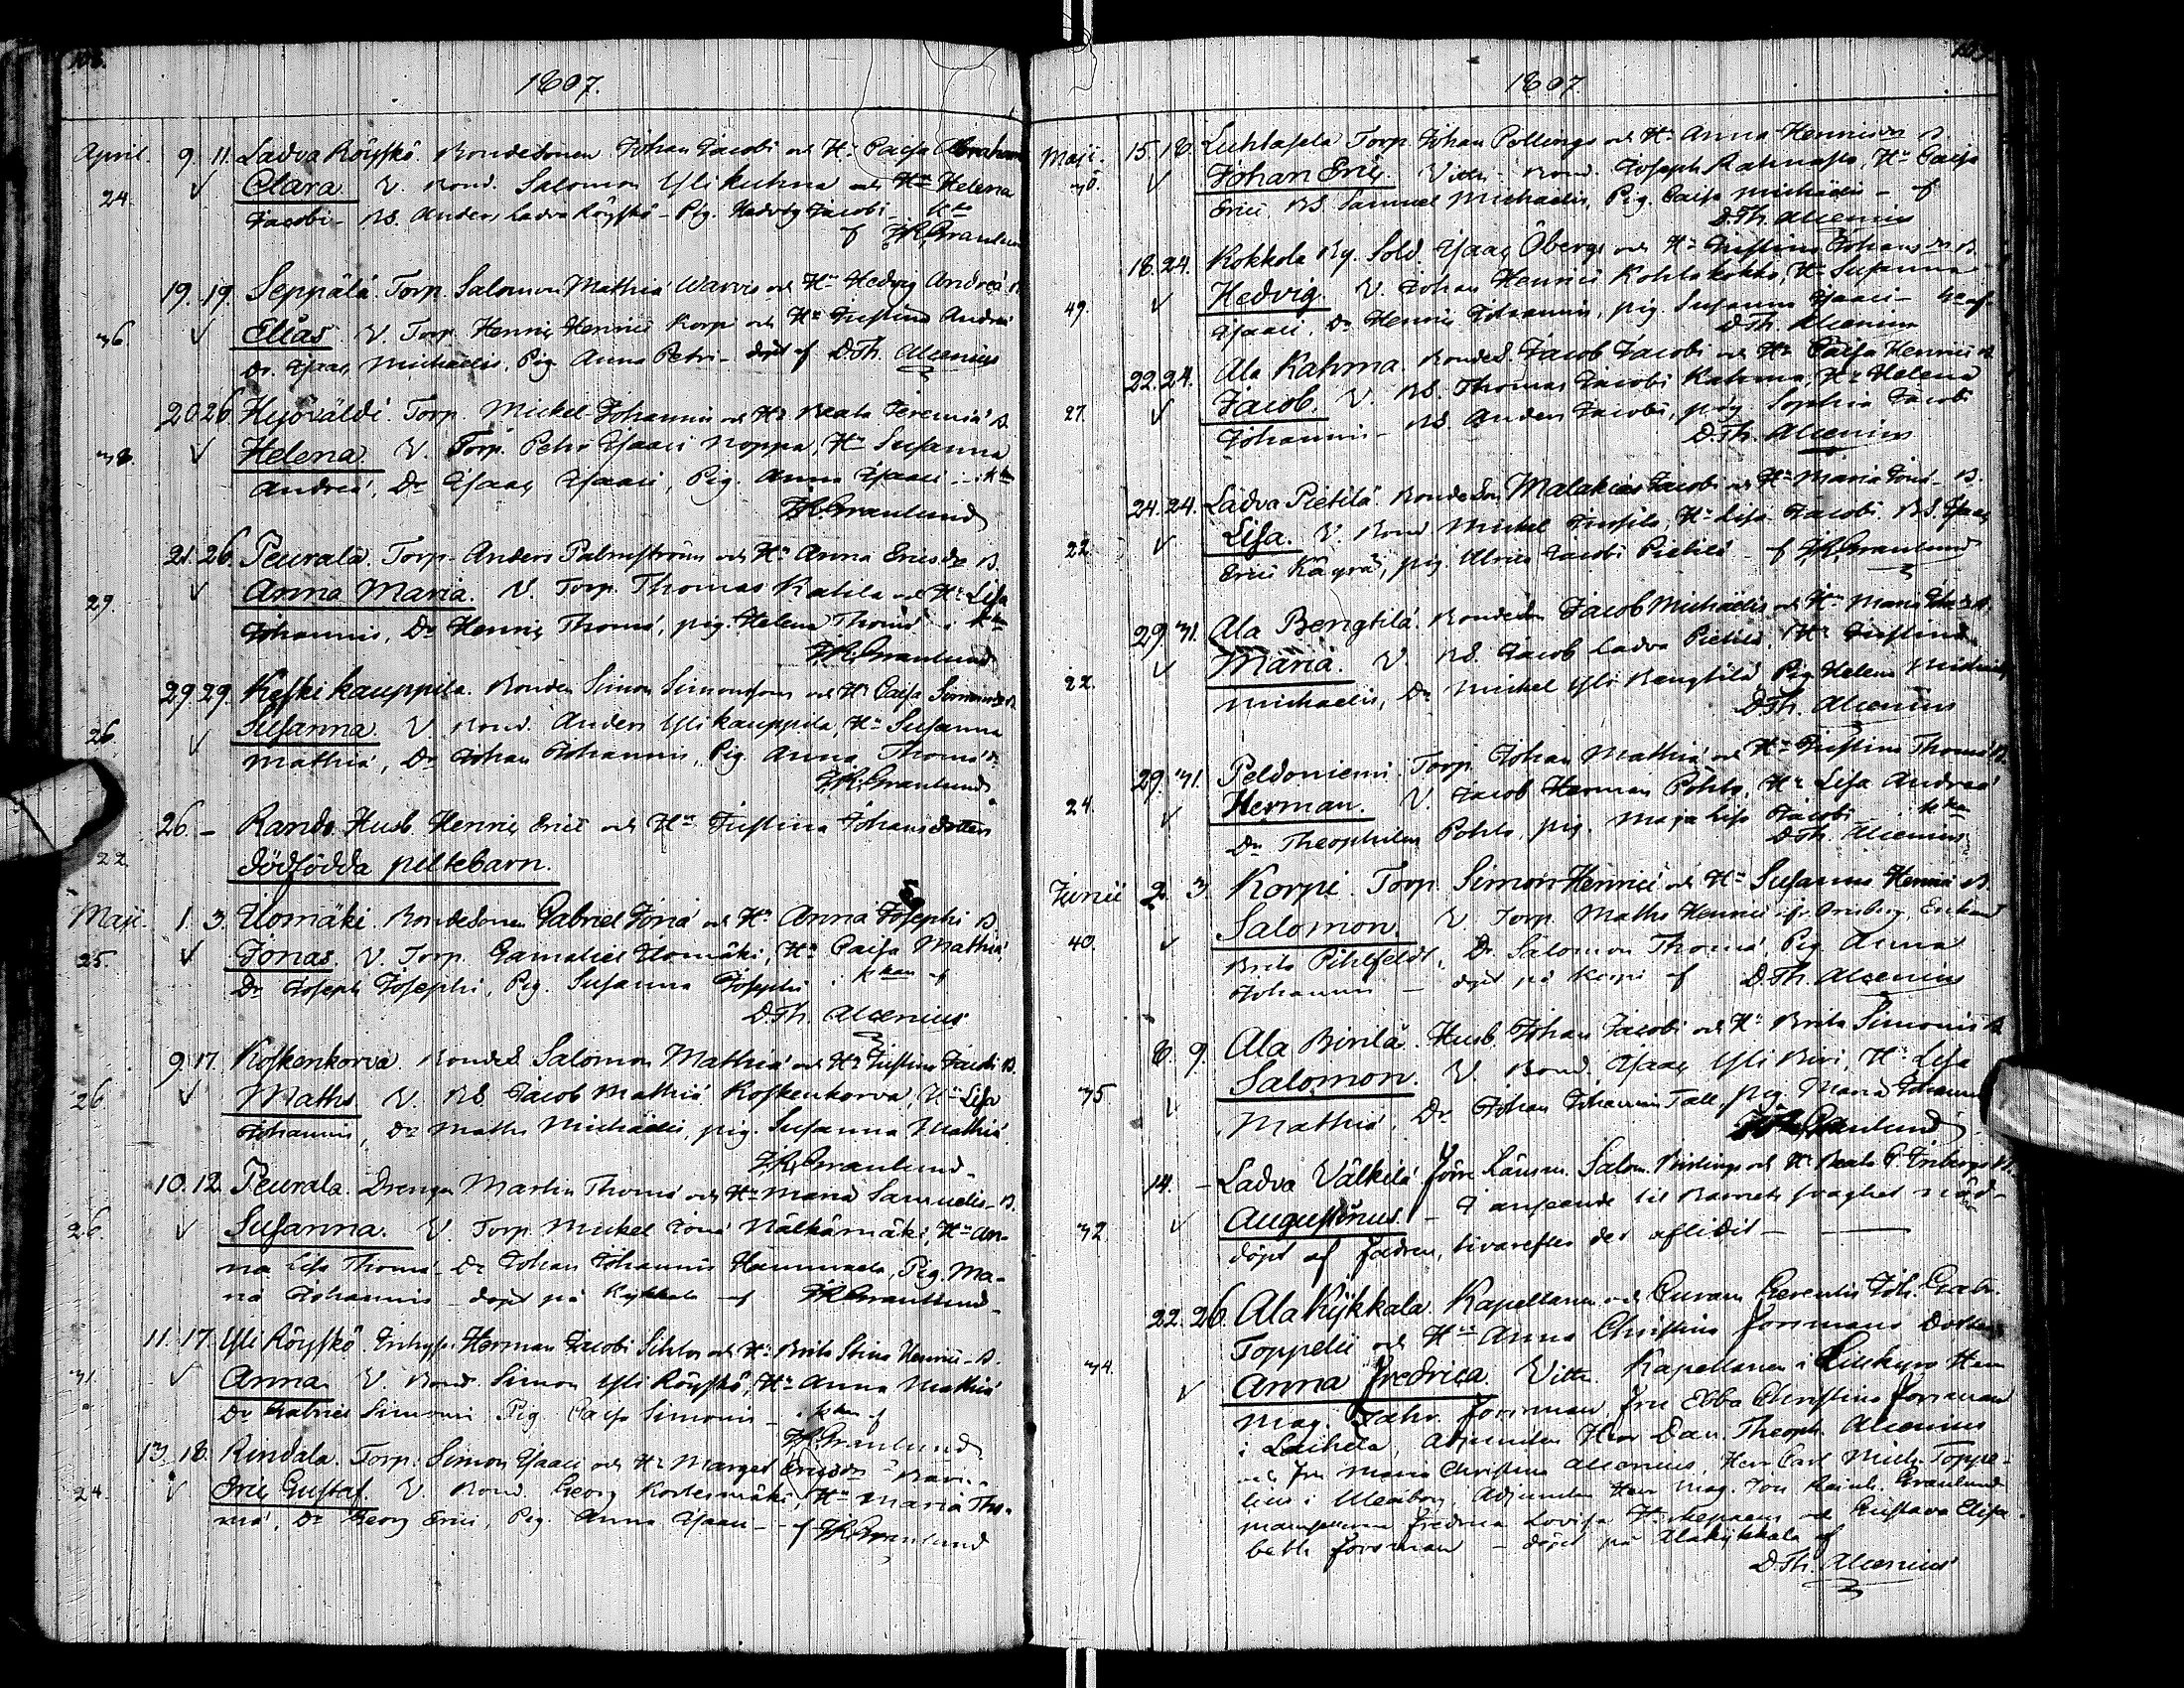 1807.
April. 9. 11. Ladva Röyskö. Bondesonen Johan Jacobi och H. Caisa Abraham
✓ Clara. V. Bond. Salomon Yli kuhna och H. Helena
24. Jacobi - BS. Anders Ladva Röyskö - Pig. Hedvig Jacobi
af JR. Granlund
19. 19. Seppälä. Torp. Salomon Mathiæ Warris och H. Hedvig Andreæ B.
36. ✓ Elias. V. Torp. Henric Henrici Korpi och H. Justina Andreæ
Dr. Isaac Michaelis, Pig. Anna Petri - döpt af D. Th. Alcenius
20. 26. Hyöväldi. Torp. Mickel Johannis och H. Beata Jeremiæ B.
38. ✓ Helena. V. Torp. Petter Isaaci Noppa, H. Susanna
Andreæ, Dr. Isaac Isaaci, Pig. Anna Isaaci
JR. Granlund
21. 26. Peurala. Torp. Anders Palmström och H. Anna Ericsdr B.
29. ✓ Anna Maria. V. Torp. Thomas Katila och H. Lisa
Johannis, Dr. Henric Thomæ, pig. Helena Thomæ i kkan
JR. Granlund
29. 29. Keski kauppila. Bonden Simon Simonsson och H. Caisa Simonsdr B.
26. ✓ Susanna V. Bond. Anders Yli kauppila, H. Susanna
Mathiæ, Dr. Johan Johannis, Pig. Anna Thomæ
JR. Granlund
26. - Rando. Husb. Henric Erici och H. Justina Johansdotters
22. dödfödda piltebarn.
Maji. 1. 3. Uomäki. Bondesonen Gabriel Jonæ och H. Anna Josephi B.
25. ✓ Jonas. V. Torp. Gamaliel Uomäki, H. Caisa Mathiæ
Dr. Joseph Josephi, Pig. Susanna Josephi i kkan af
D. Th. Alcenius
9. 17. Koskenkorva. Bondes. Salomon Mathiæ och H. Justina Jacobi B.
26. ✓ Maths V. BS. Jacob Mathiæ Koskenkorva, H. Lisa
Johannis, Dr. Maths Michaelis, pig. Susanna Mathiæ
JR. Granlund
10. 12. Peurala. Drengen Martin Thomæ och H. Maria Samuelis B.
26. ✓ Susanna. V. Torp. Mickel Jonæ Nälkämäki, H. An-
na Lisa Thomæ - Dr. Johan Johannis Hammaela, Pig. Ma-
ria Johannis döpt på Kykkala af JR. Granlund
11. 17. Yli Röyskö. Herman Jacobi och H. Brita Stina Henrici B.
31. ✓ Anna V. Bond. Simon Yli Röyskö, H. Anna Mathiæ
Dr. Gabriel Simonis Pig. Caisa Simonis - i kkan af
JR. Granlund
13. 18. Rindala. Torp. Simon Isaaci och H. Marget Ericsdr Barn
24. ✓ Eric Gustaf. V. Bond. Georg Kortesmäki, H. Maria Tho-
mæ, Dr. Georg Erici, Pig. Anna Isaaci - af JR. Granlund
1807
Maji. 15. 18. Luhtasela Torp. Johan Pollings och H. Anna Henricsdr B.
30. ✓ Johan Eric. Vittn. Bond. Joseph Rahnasto, H. Caisa
Erici, BS. Samuel Michaelis, Pig. Caisa Michaelis - af
D. Th. Alcenius
18. 24. Kokkola By. Sold. Isaac Öbergs och H. Justina Johansdr B.
49. ✓ Hedvig. V. Johan Henrici Kohlakokko, H. Susanna
Isaaci, Dr. Henric Johannis, pig. Susanna Isaaci - af
D. Th. Alcenius
22. 24. Ala Kahma. Bondes. Jacob Jacobi och H. Caisa Henrici B.
27. ✓ Jacob. V. BS. Thomas Jacobi Kahma, H. Helena
Johannis - BS. Anders Jacobi, pig. Sophia Jacobi
D. Th. Alcenius
24. 24. Ladva Pietilä. Bondeson Malakias Jacobi och H. Maria Jonæ B.
22. ✓ Lisa. V. Bond. Mickel, H. Lisa Jacobi. BS. Isaac
Erici Käyrä, pig. Ulrica Jacobi Pietilä - af JR. Granlund
29. 31. Ala Bengtilä. Bondeson Jacob Michaelis och H. Maria B.
22. ✓ Maria. V. BS. Jacob Ladva Pietilä, H. Justina
Michaelis, Dr. Mickel Yli Bengtilä Pig. Helena Michaelis
D. Th. Alcenius
29. 31. Peldoniemi. Torp. Johan Mathiæ och H. Justina Thomæ B.
24. ✓ Herman. V. Jacob Herman Pohls, H. Lisa Andreæ
Dr. Theophilus Pohls, pig. Maja Lisa Jacobi - i kkan
D. Th. Alcenius
Junii 2. 3. Korpi. Torp. Simon Henrici och H. Susanna Henrici B.
40. ✓ Salomon. V. Torp. Maths Henrici
Brita Pihlfeldt, Dr. Salomon Thomæ, Pig. Anna
Johannis - döpt på Korpi af D. Th. Alcenius
8. 9. Ala Birilä. Husb. Johan Jacobi och H. Brita Simonis B.
35 ✓ Salomon. V. Bond. Isaac Yli Biri, H. Lisa
Mathiæ, Dr. Johan Johannis Tall, pig. Maria Johannis
JR. Granlund
14. - Ladva Välkilä Länsm. Salom. Birlings och H. Beata B.
32. ✓ Augustinus. - I anseende til Barnets svaghet nöd-
döpt af fadren, hvarefter det aflidit -
22. 26. Ala Kykkala. Kapellanen och Joh. Gabr.
Toppelii och H. Anna Christina Forsmans Dotter
34. ✓ Anna Fredrica Vittn. Kapellanen i Herr
Mag. Forsman Fru Ebba Christina Forsman
i Laihela, Adjuncten Herr Dan. Theoph. Alcenius
och Maria Christina Alcenius, Herr Carl Mich. Toppe-
lius i Uleåborg, Adjuncten Herr Mag. Granlund
Fredrica Lovisa och Gustava Elisa-
beth Forsman - döpt på Alakykkala af
D. Th. Alcenius